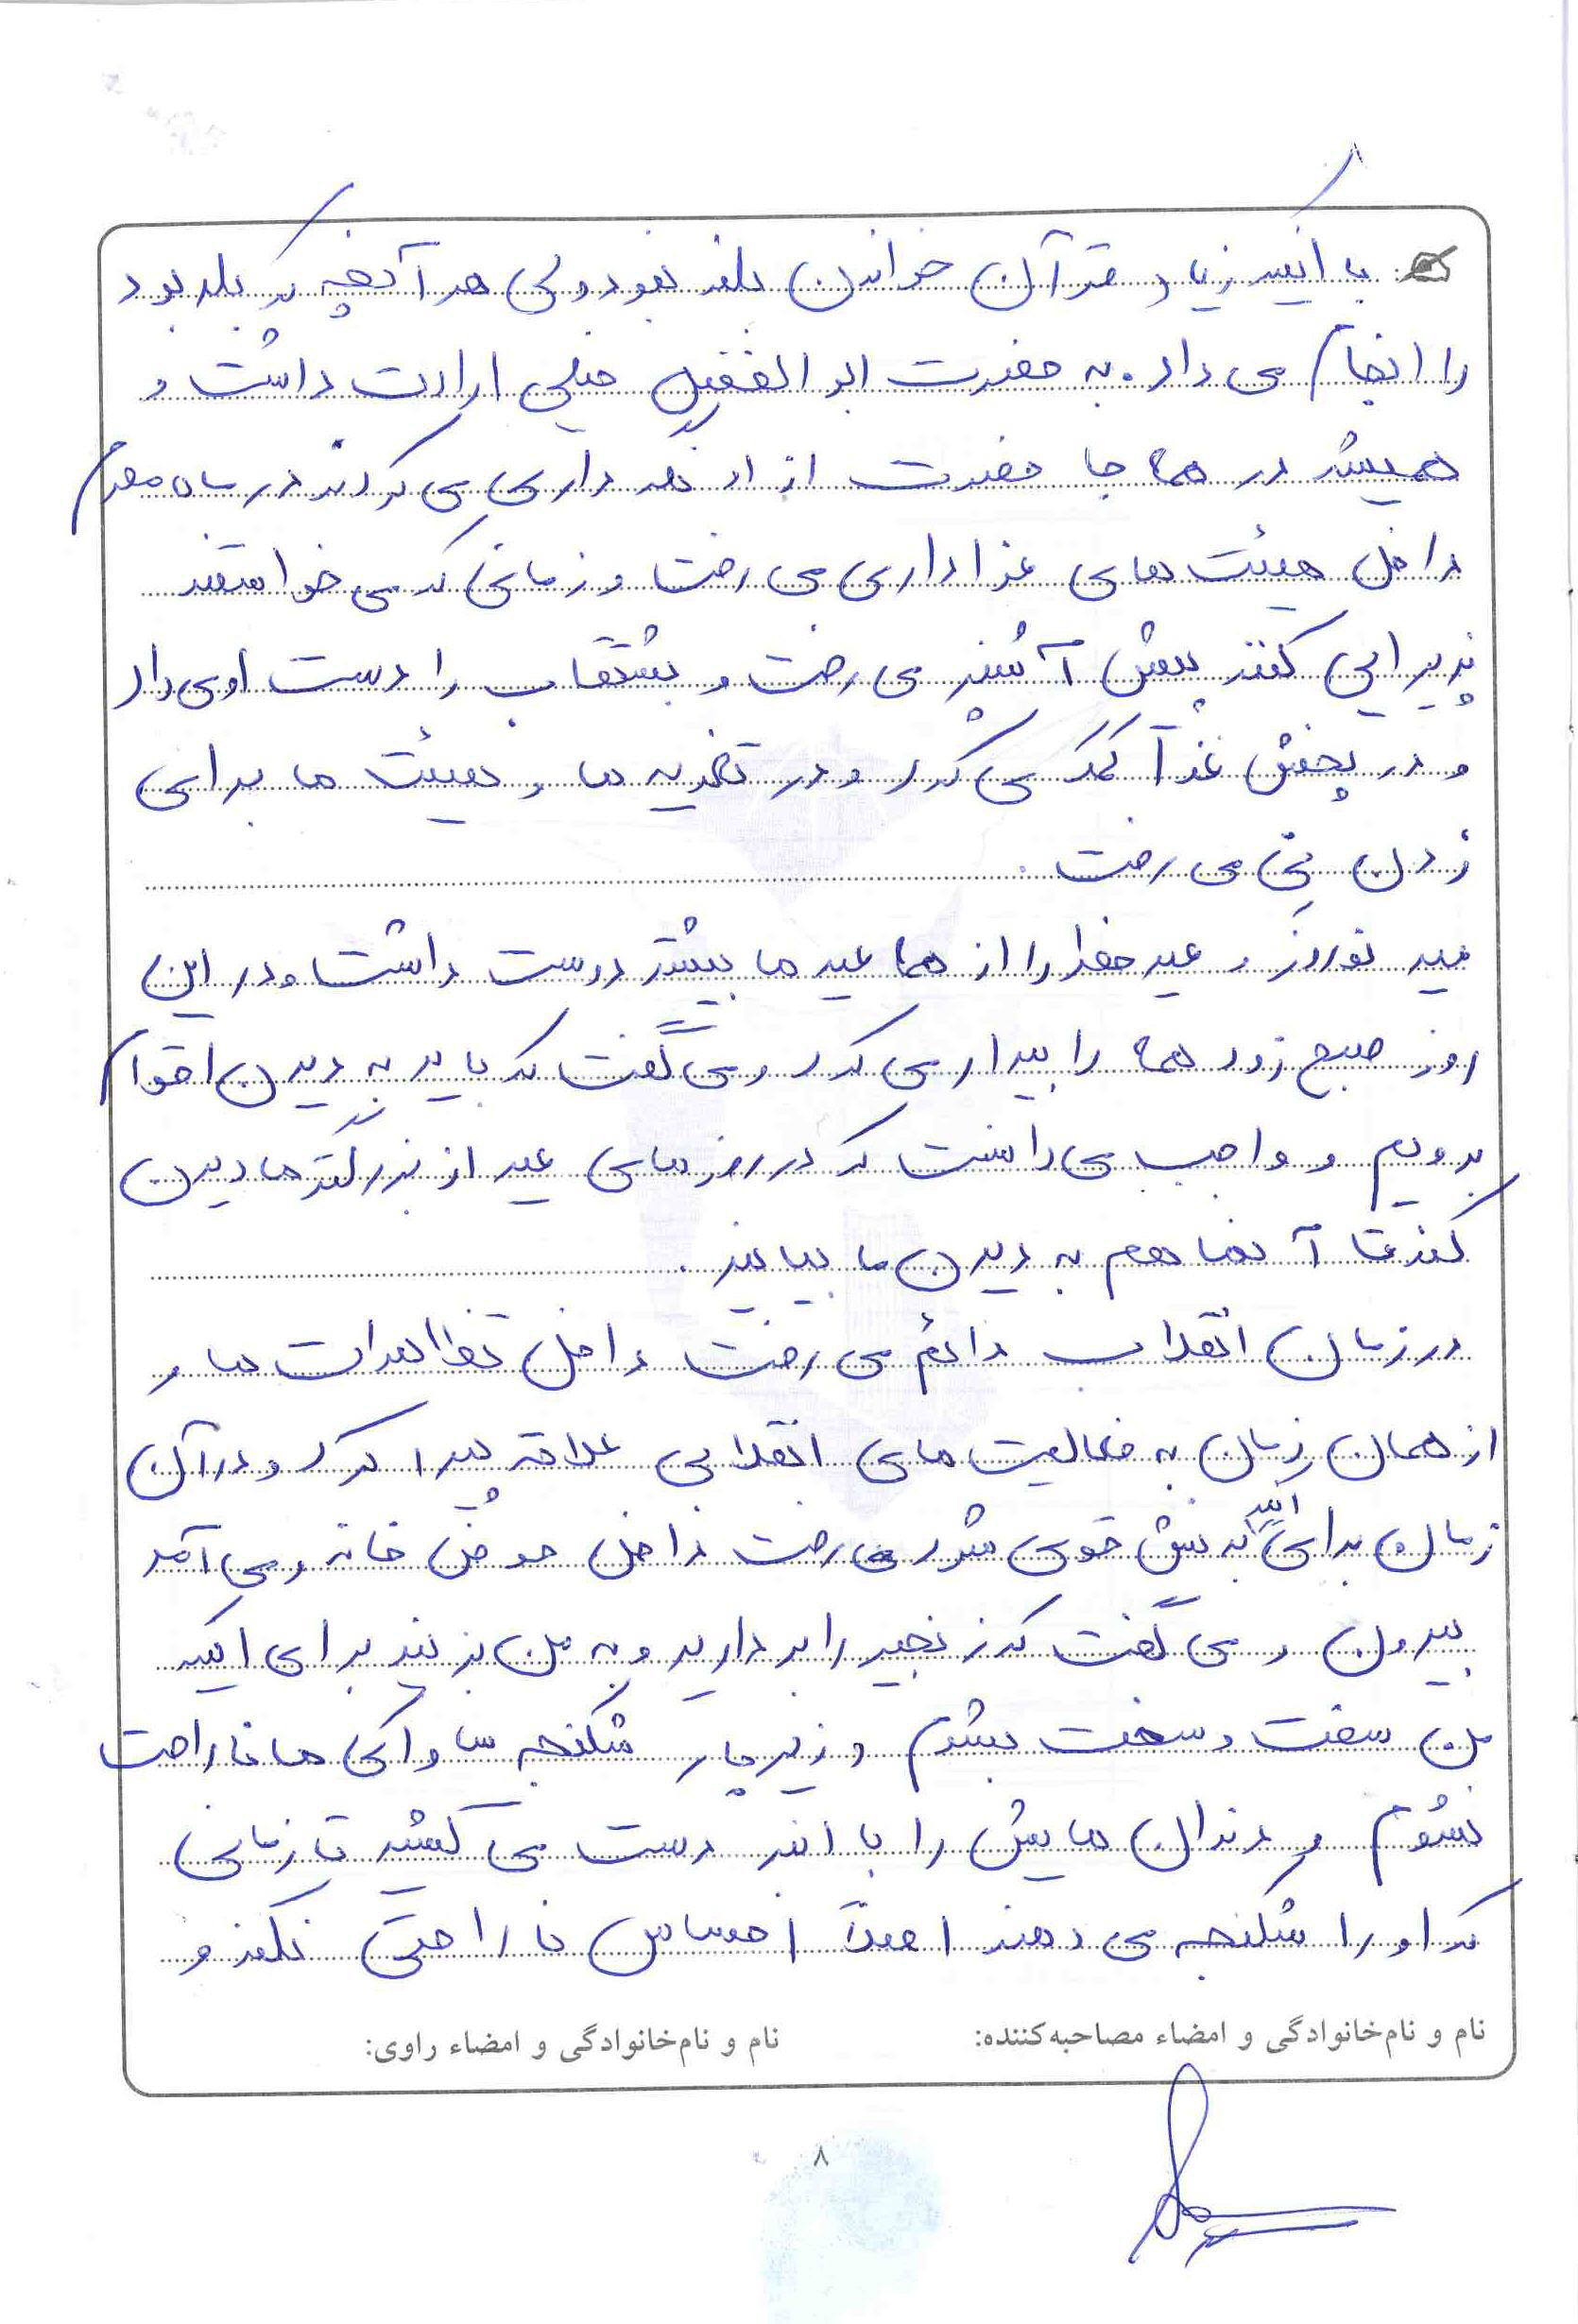 ۸
با اینکه زیاد قرآن خواندن بلد نبود ولی هر آنچه که بلد بود
را انجام می داد. به حضرت ابوالفضل خیلی ارادت داشت و
همیشه در همه جا حضرت از او نگه داری می کردند در ماه محرم
داخل هیئت های عزاداری می رفت و زمانی که می خواستند
پذیرایی کنند پیش آشپز می رفت و بشقاب را دست او می داد
و در پختن غذا کمک می کرد و در تعزیه ها و هیئت ها برای
زدن نی می رفت.
عید نوروز و عید فطر را از همه عید ها بیشتر دوست داشت و در این
روز صبح زود همه را بیدار می کرد و می گفت که باید به دیدن اقوام
برویم و واجب می دانست که در روز های عید از بزرگتر ها دیدن
کند تا آنها هم به دیدن ما بیایند.
در زمان انقلاب دائم می رفت داخل تظاهرات ها و
از همان زمان به فعالیت های انقلابی علاقه پیدا کرد و در آن
زمان برای اینکه بدنش قوی شود می رفت داخل حوض خانه و می آمد
بیرون و می گفت که زنجیر را بردارید و به من بزنید برای اینکه
من سفت و سخت بشوم و زیر بار شکنجه ساواکی ها ناراحت
نشوم و دندان هایش را با انبر دست می کشید تا زمانی
که او را شکنجه می دهند اصلاً احساس ناراحتی نکند و
نام و نام‌خانوادگی و امضاء مصاحبه‌کننده: نام و نام‌خانوادگی و امضاء راوی:
۸